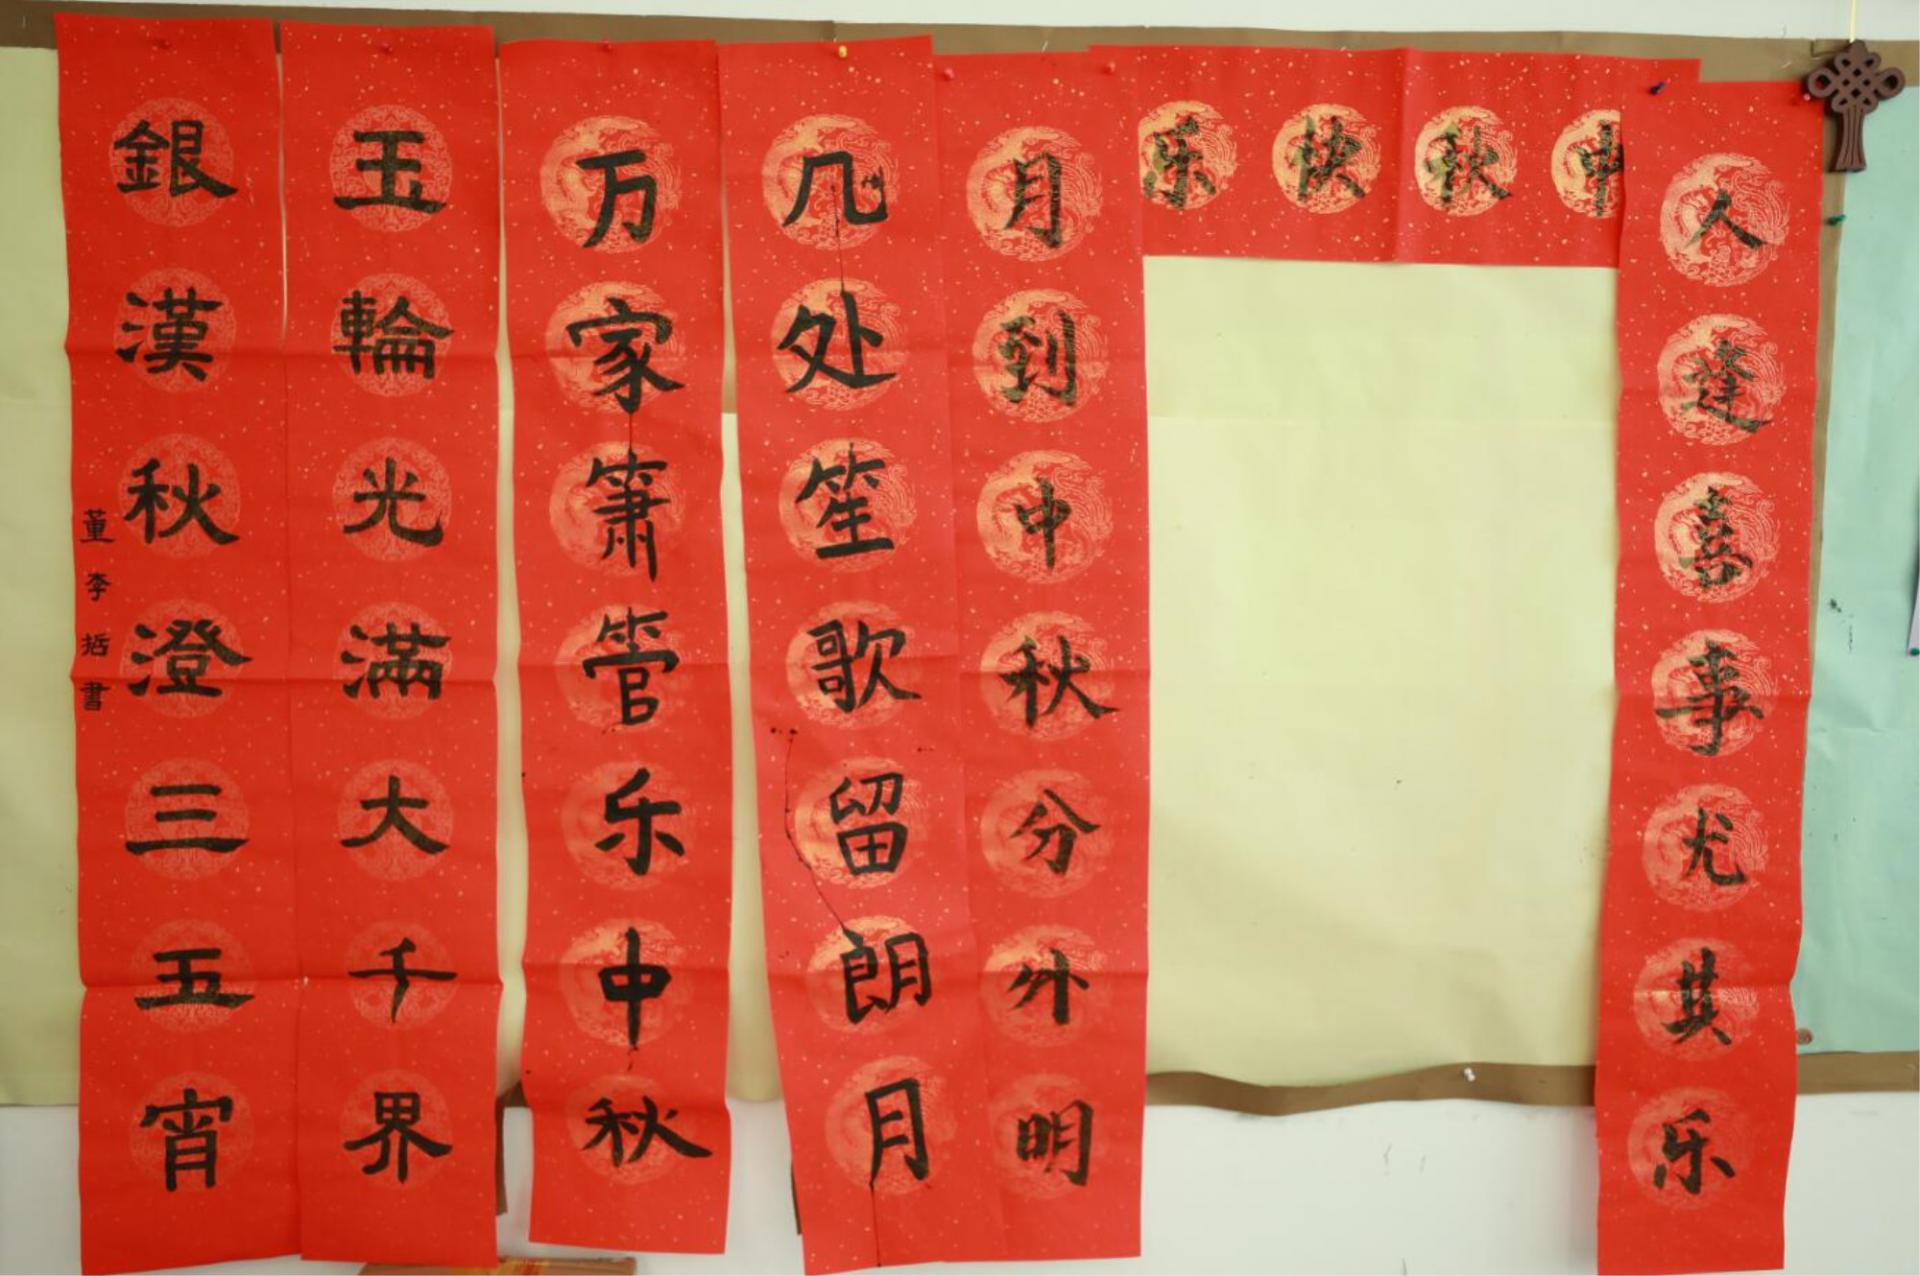 人逢喜事尤其乐
中秋快乐
月到中秋分外明
几处笙歌留朗月
万家箫管乐中秋
玉輪光滿大千界
銀漢秋澄三五宵
董李括書